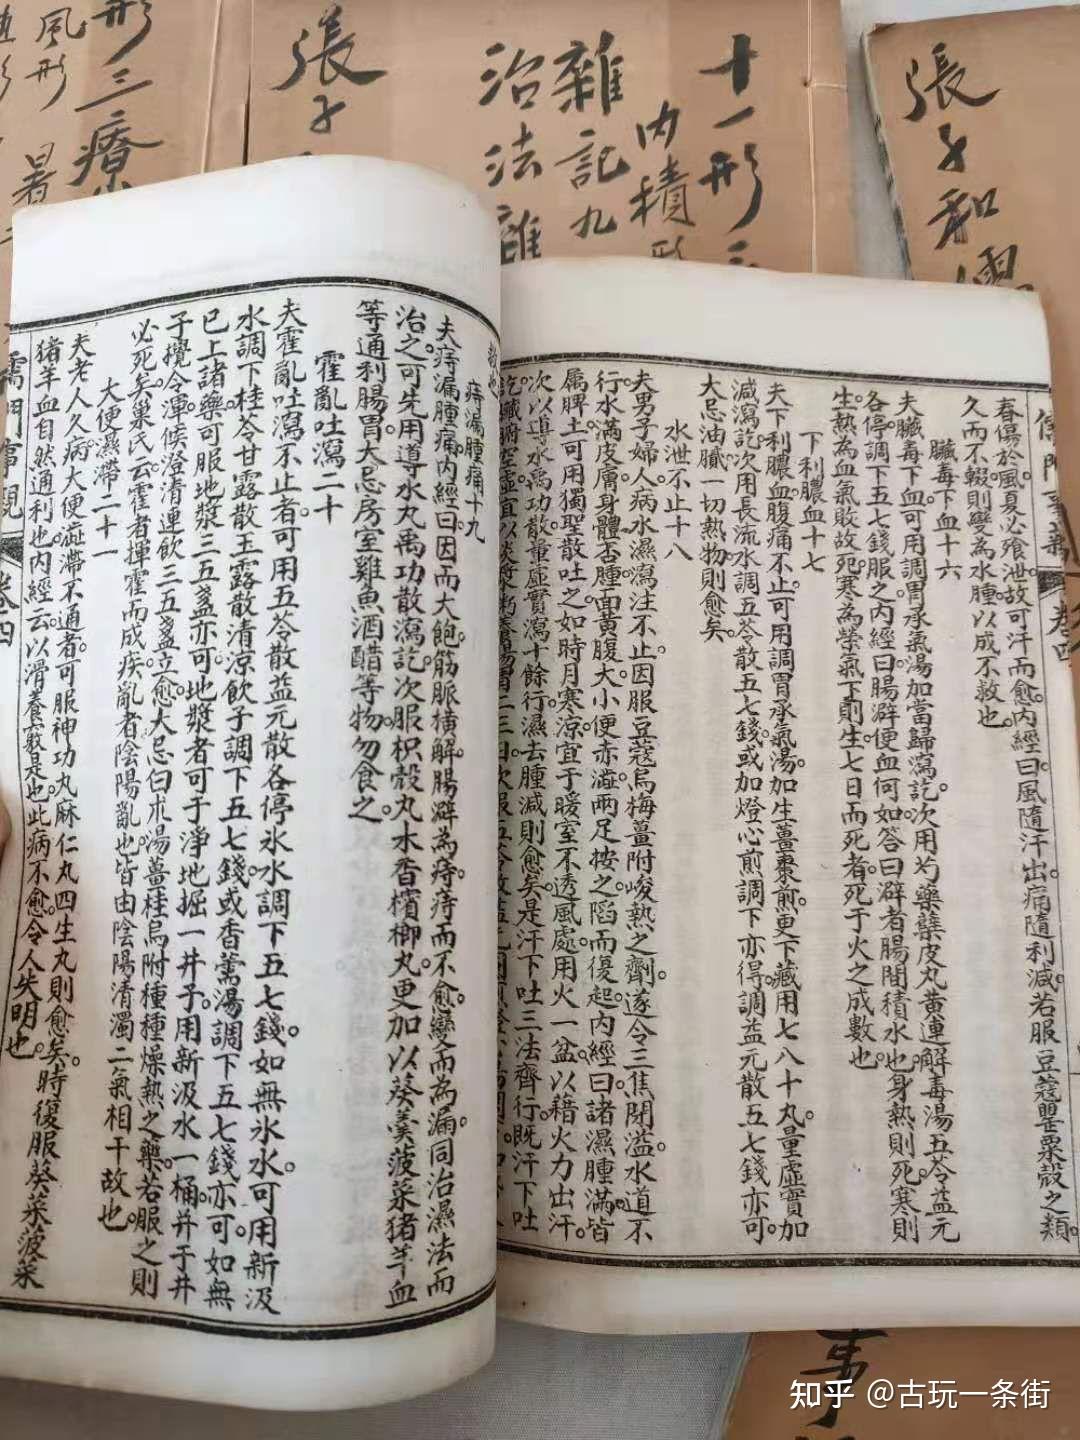 儒門事親 卷四
春傷於風。夏必飧泄。故可汗而愈。內經曰。風隨汗出。痛隨利減。若服豆蔻罌粟殼之類。
久而不輟。則變為水腫。以成不救也。
臟毒下血十六
夫臟毒下血。可用調胃承氣湯加當歸。瀉訖。次用芍藥蘗皮丸黃連解毒湯五苓益元
各停。調下五七錢服之。內經曰。腸澼便血何如。答曰。澼者。腸間積水也。身熱則死。寒則
生。熱為血氣敗。故死。寒為榮氣下。則生。七日而死者。死于火之成數也。
下利膿血十七
夫下利膿血。腹痛不止。可用調胃承氣湯。加生薑棗煎。更下藏用七八十丸。量虛實加
減。瀉訖。次用長流水調五苓散五七錢。或加燈心煎調下亦得。調益元散五七錢亦可。
大忌油膩一切熱物則愈矣。
水泄不止十八
夫男子婦人病水濕瀉注不止。因服豆蔻烏梅薑附峻熱之劑。遂令三焦閉溢。水道不
行。水滿皮膚。身體否腫。面黃腹大。小便赤澁。兩足按之陷而復起。內經曰。諸濕腫滿。皆
屬脾土。可用獨聖散吐之。如時月寒涼。宜于暖室不透風處。用火一盆。以藉火力出汗。
次以導水禹功散。量虛實瀉十餘行。濕去腫減則愈矣。是汗下吐三法齊行。既汗下吐
訖。臟腑空虛。宜以淡漿粥養腸胃二三日。次服五苓散益元同
痔漏腫痛十九
夫痔漏腫痛。內經曰。因而大飽。筋脈橫解。腸澼為痔。痔而不愈。變而為漏。同治濕法而
治之。可先用導水丸禹功散。瀉訖。次服枳殼丸木香檳榔丸。更加以葵羹菠菜猪羊血
等。通利腸胃。大忌房室雞魚酒醋等物勿食之。
霍亂吐瀉二十
夫霍亂吐瀉不止者。可用五苓散益元散各停。氷水調下五七錢。如無氷水。可用新汲
水調下桂苓甘露散玉露散清凉飲子。調下五七錢。或香薷湯調下五七錢亦可。如無
已上諸藥。可服地漿三五盞亦可。地漿者。可于淨地掘一井子。用新汲水一桶。并于井
子攪令渾。候澄清。連飲三五盞立愈。大忌白朮湯薑桂烏附種種燥熱之藥。若服之則
必死矣。巢氏云。霍者揮霍而成疾。亂者陰陽亂也。皆由陰陽清濁二氣相干故也。
大便濕滯二十一
夫老人久病。大便澁滯不通者。可服神功丸麻仁丸四生丸則愈矣。時復服葵菜菠菜
猪羊血。自然通利也。內經云。以滑養竅是也。此病不愈。令人失明也。
儒門事親 卷四
張子和儒
十一形三
內積形
雜記九
治法雜
張子
形三療
風形
暑
事
知乎 @古玩一条街